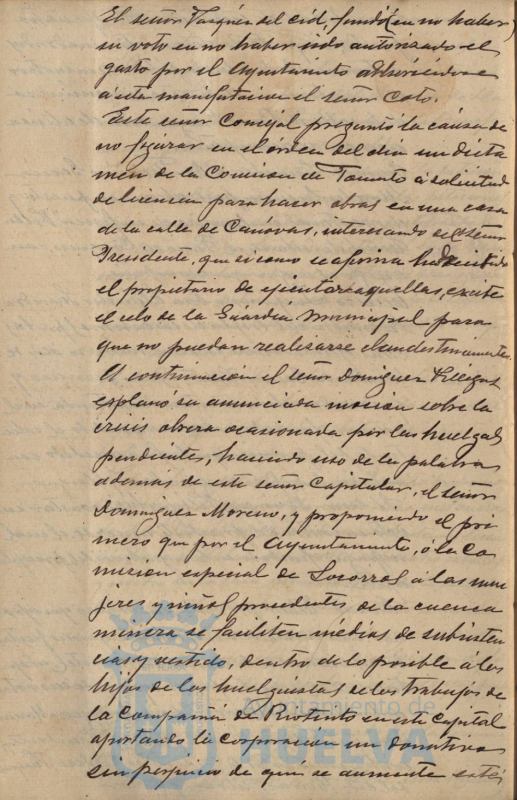 El señor Vázquez del Cid, fundó (en no haber)
su voto en no haber sido autorizado el
gasto por el Ayuntamiento adhiriéndose
a esta manifestación el señor Coto.
Este señor Concejal preguntó la causa de
no figurar en el órden del dia un dicta
men de la Comision de Fomento á solicitud
de licencia para hacer obras en una casa
de la calle de Cánovas, interesando del Señor
Presidente, que si como se afirma ha desistido
el propietario de ejecutar aquellas, excite
el celo de la Guardia Municipal para
que no puedan realizarse clandestinamente.
A continuacion el señor Dominguez Villegas
esplanó su anunciada mocion sobre la
crisis obrera ocasionada por las huelgas
pendientes, haciendo uso de la palabra
ademas de este señor Capitular, el señor
Dominguez Moreno, y proponiendo el pri
mero que por el Ayuntamiento, ó la Co
mision especial de Socorros á las mu
jeres y niños procedentes de la cuenca
minera se faciliten medios de subsisten
cias y vestido, dentro de lo posible á los
hijos de los huelguistas de los trabajos de
la Compañia de Riotinto en esta Capital
aportando la corporacion un donativo
sin perjuicio de que se aumente este
Ayuntamiento de
HUELVA